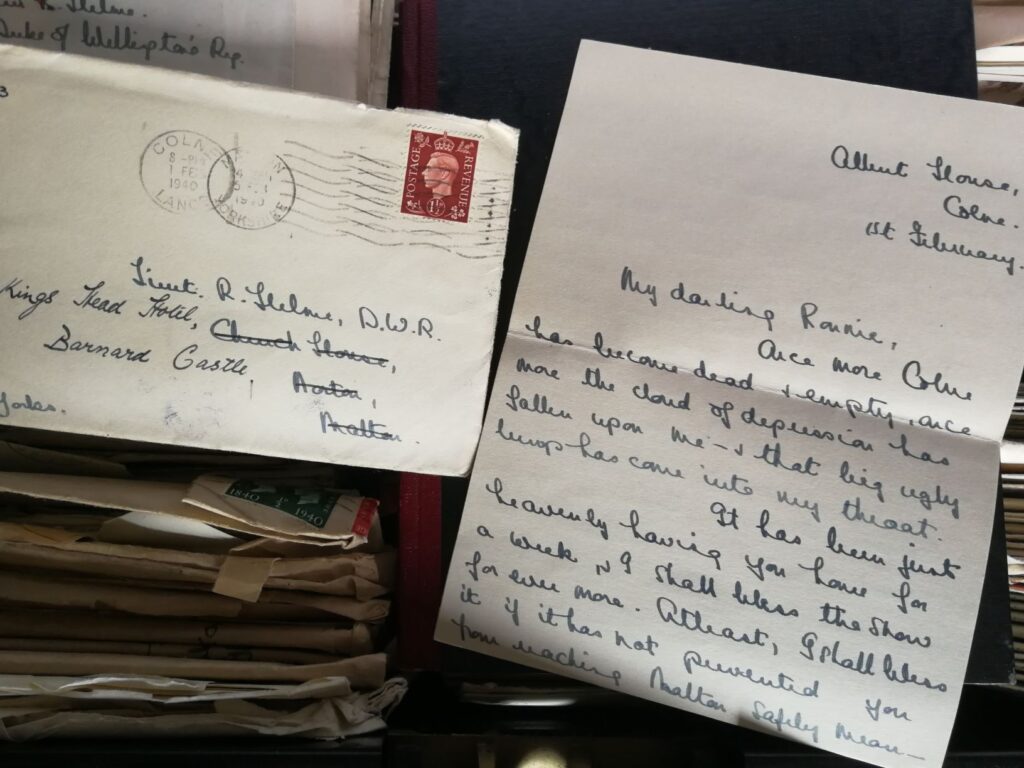 Duke of Wellington's Reg.
3
COLNE
8 - PM
1 FEB
1940
LANCS
YORKSHIRE
POSTAGE
REVENUE
1½
Lieut. R. Helme, D.W.R.
Kings Head Hotel, Church House,
Barnard Castle
Norton,
Malton.
Yorks.
1840 ½ 1940
Albert House,
Colne.
1st February.
My darling Ronnie,
Once more Colne
has become dead & empty, once
more the cloud of depression has
fallen upon me - & that big ugly
lump has come into my throat.
It has been just
heavenly having you home for
a week & I shall bless the snow
for ever more. Atleast, I shall bless
it if it has not prevented you
from reaching Malton safely. Mean-